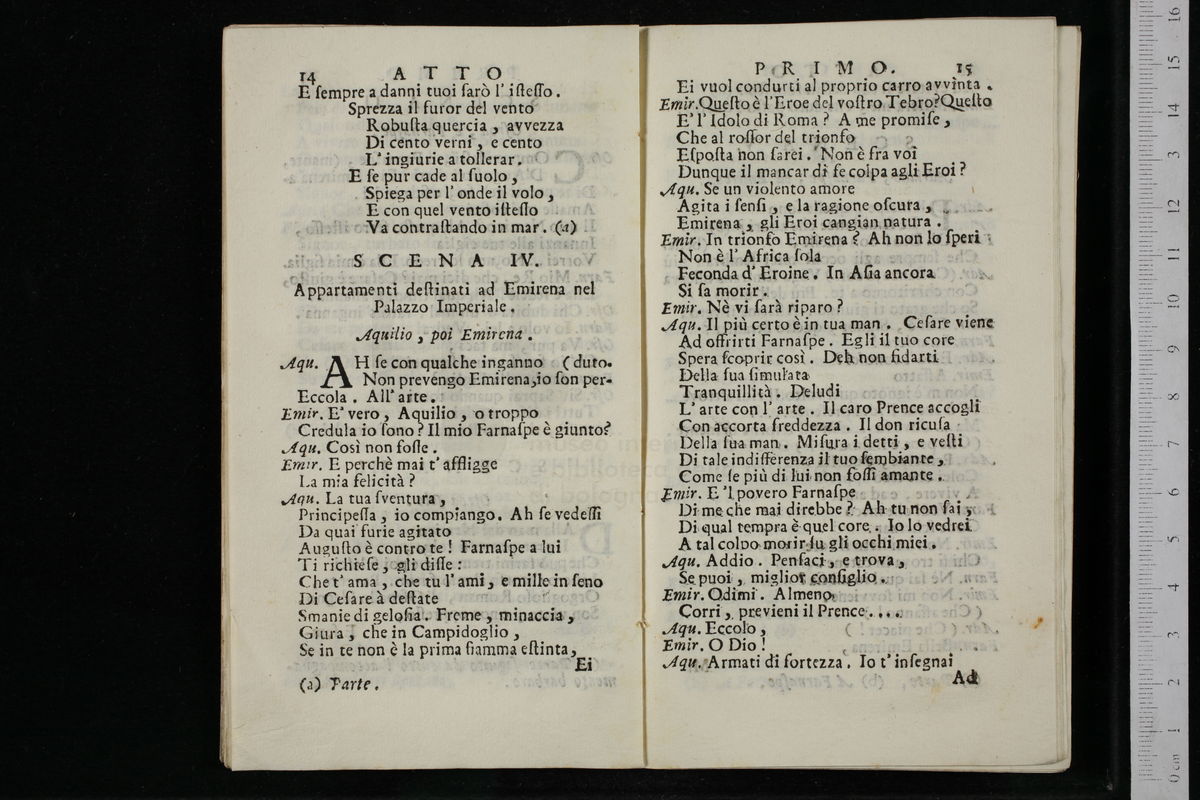 14 ATTO
E ſempre a danni tuoi ſarò l' iſteſſo.
Sprezza il furor del vento
Robuſta quercia, avvezza
Di cento verni, e cento
L' ingiurie a tollerar.
E ſe pur cade al ſuolo,
Spiega per l' onde il volo,
E con quel vento iſteſſo
Va contraſtando in mar. (a)
SCENA IV.
Appartamenti deſtinati ad Emirena nel
Palazzo Imperiale.
Aquilio, poi Emirena.
Aqu. AH ſe con qualche inganno (duto.
Non prevengo Emirena, io ſon per-
Eccola. All' arte.
Emir. E' vero, Aquilio, o troppo
Credula io ſono? Il mio Farnaſpe è giunto?
Aqu. Così non foſſe.
Emir. E perchè mai t' affligge
La mia felicità?
Aqu. La tua ſventura,
Principeſſa, io compiango. Ah ſe vedeſſi
Da quai furie agitato
Auguſto è contro te! Farnaſpe a lui
Ti richieſe, gli diſſe:
Che t' ama, che tu l' ami, e mille in ſeno
Di Ceſare à deſtate
Smanie di geloſia. Freme, minaccia,
Giura, che in Campidoglio,
Se in te non è la prima fiamma eſtinta,
Ei
(a) Parte.
PRIMO. 15
Ei vuol condurti al proprio carro avvinta.
Emir. Queſto è l'Eroe del voſtro Tebro? Queſto
E' l' Idolo di Roma? A me promiſe,
Che al roſſor del trionfo
Eſpoſta non ſarei. Non è fra voi
Dunque il mancar di fe colpa agli Eroi?
Aqu. Se un violento amore
Agita i ſenſi, e la ragione oſcura,
Emirena, gli Eroi cangian natura.
Emir. In trionfo Emirena? Ah non lo ſperi
Non è l' Africa ſola
Feconda d' Eroine. In Aſia ancora
Si ſa morir.
Emir. Nè vi ſarà riparo?
Aqu. Il più certo è in tua man. Ceſare viene
Ad offrirti Farnaſpe. Egli il tuo core
Spera ſcoprir così. Deh non fidarti
Della ſua ſimulata
Tranquillità. Deludi
L' arte con l' arte. Il caro Prence accogli
Con accorta freddezza. Il don ricuſa
Della ſua man. Miſura i detti, e veſti
Di tale indifferenza il tuo ſembiante,
Come ſe più di lui non foſſi amante.
Emir. E 'l povero Farnaſpe
Di me che mai direbbe? Ah tu non ſai,
Di qual tempra è quel core. Io lo vedrei
A tal colpo morir ſu gli occhi miei.
Aqu. Addio. Penſaci, e trova,
Se puoi, miglior conſiglio.
Emir. Odimi. Almeno
Corri, previeni il Prence....
Aqu. Eccolo,
Emir. O Dio!
Aqu. Armati di fortezza. Io t' inſegnai
Ad